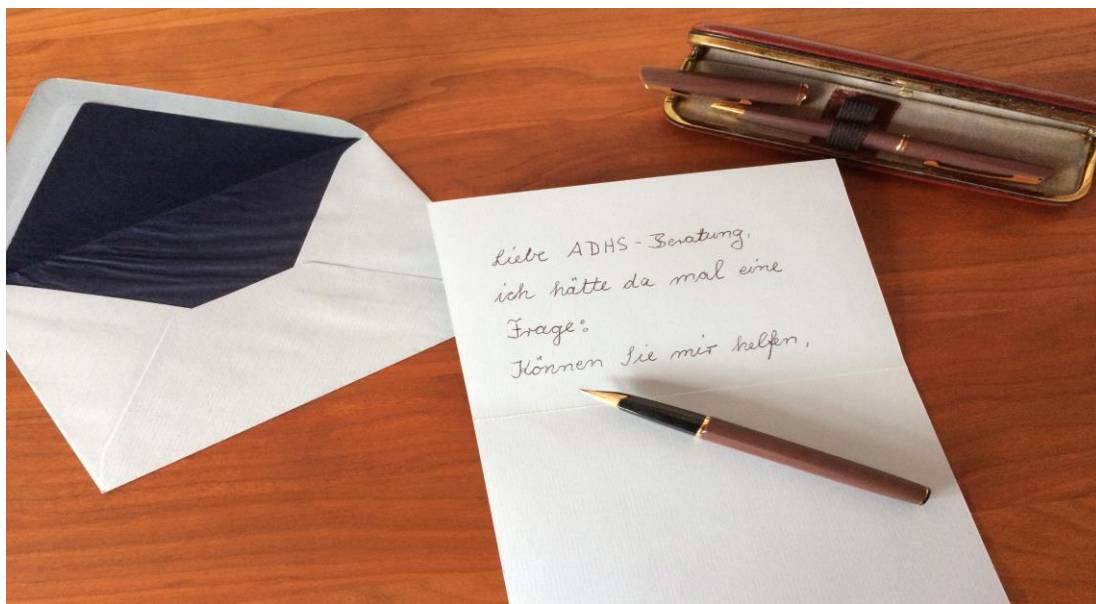 Liebe ADHS-Beratung,
ich hätte da mal eine
Frage:
Können Sie mir helfen,